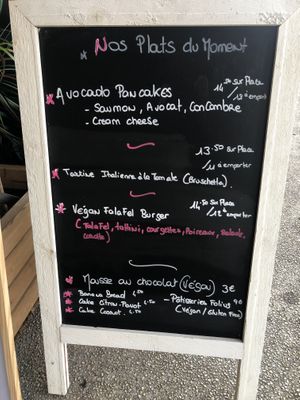 Nos Plats du Moment
Avocado Pancakes 14.50 sur Place
/13 à emporter
- Saumon, Avocat, Concombre
- Cream cheese
13.50 sur Place
/11 à emporter
Tartine Italienne à la Tomate (Bruschetta).
Vegan Falafel Burger 14.50 sur Place
/12 à emporter
(Falafel, tahini, courgettes, Poireaux, Salade,
carotte)
Mousse au chocolat (Vegan) 3€
Banana Bread 4.50
- Pâtisseries Folius 9€
Cake Citron-Pavot 4.50
(Vegan/Gluten Free)
Cake Carrot 4.50